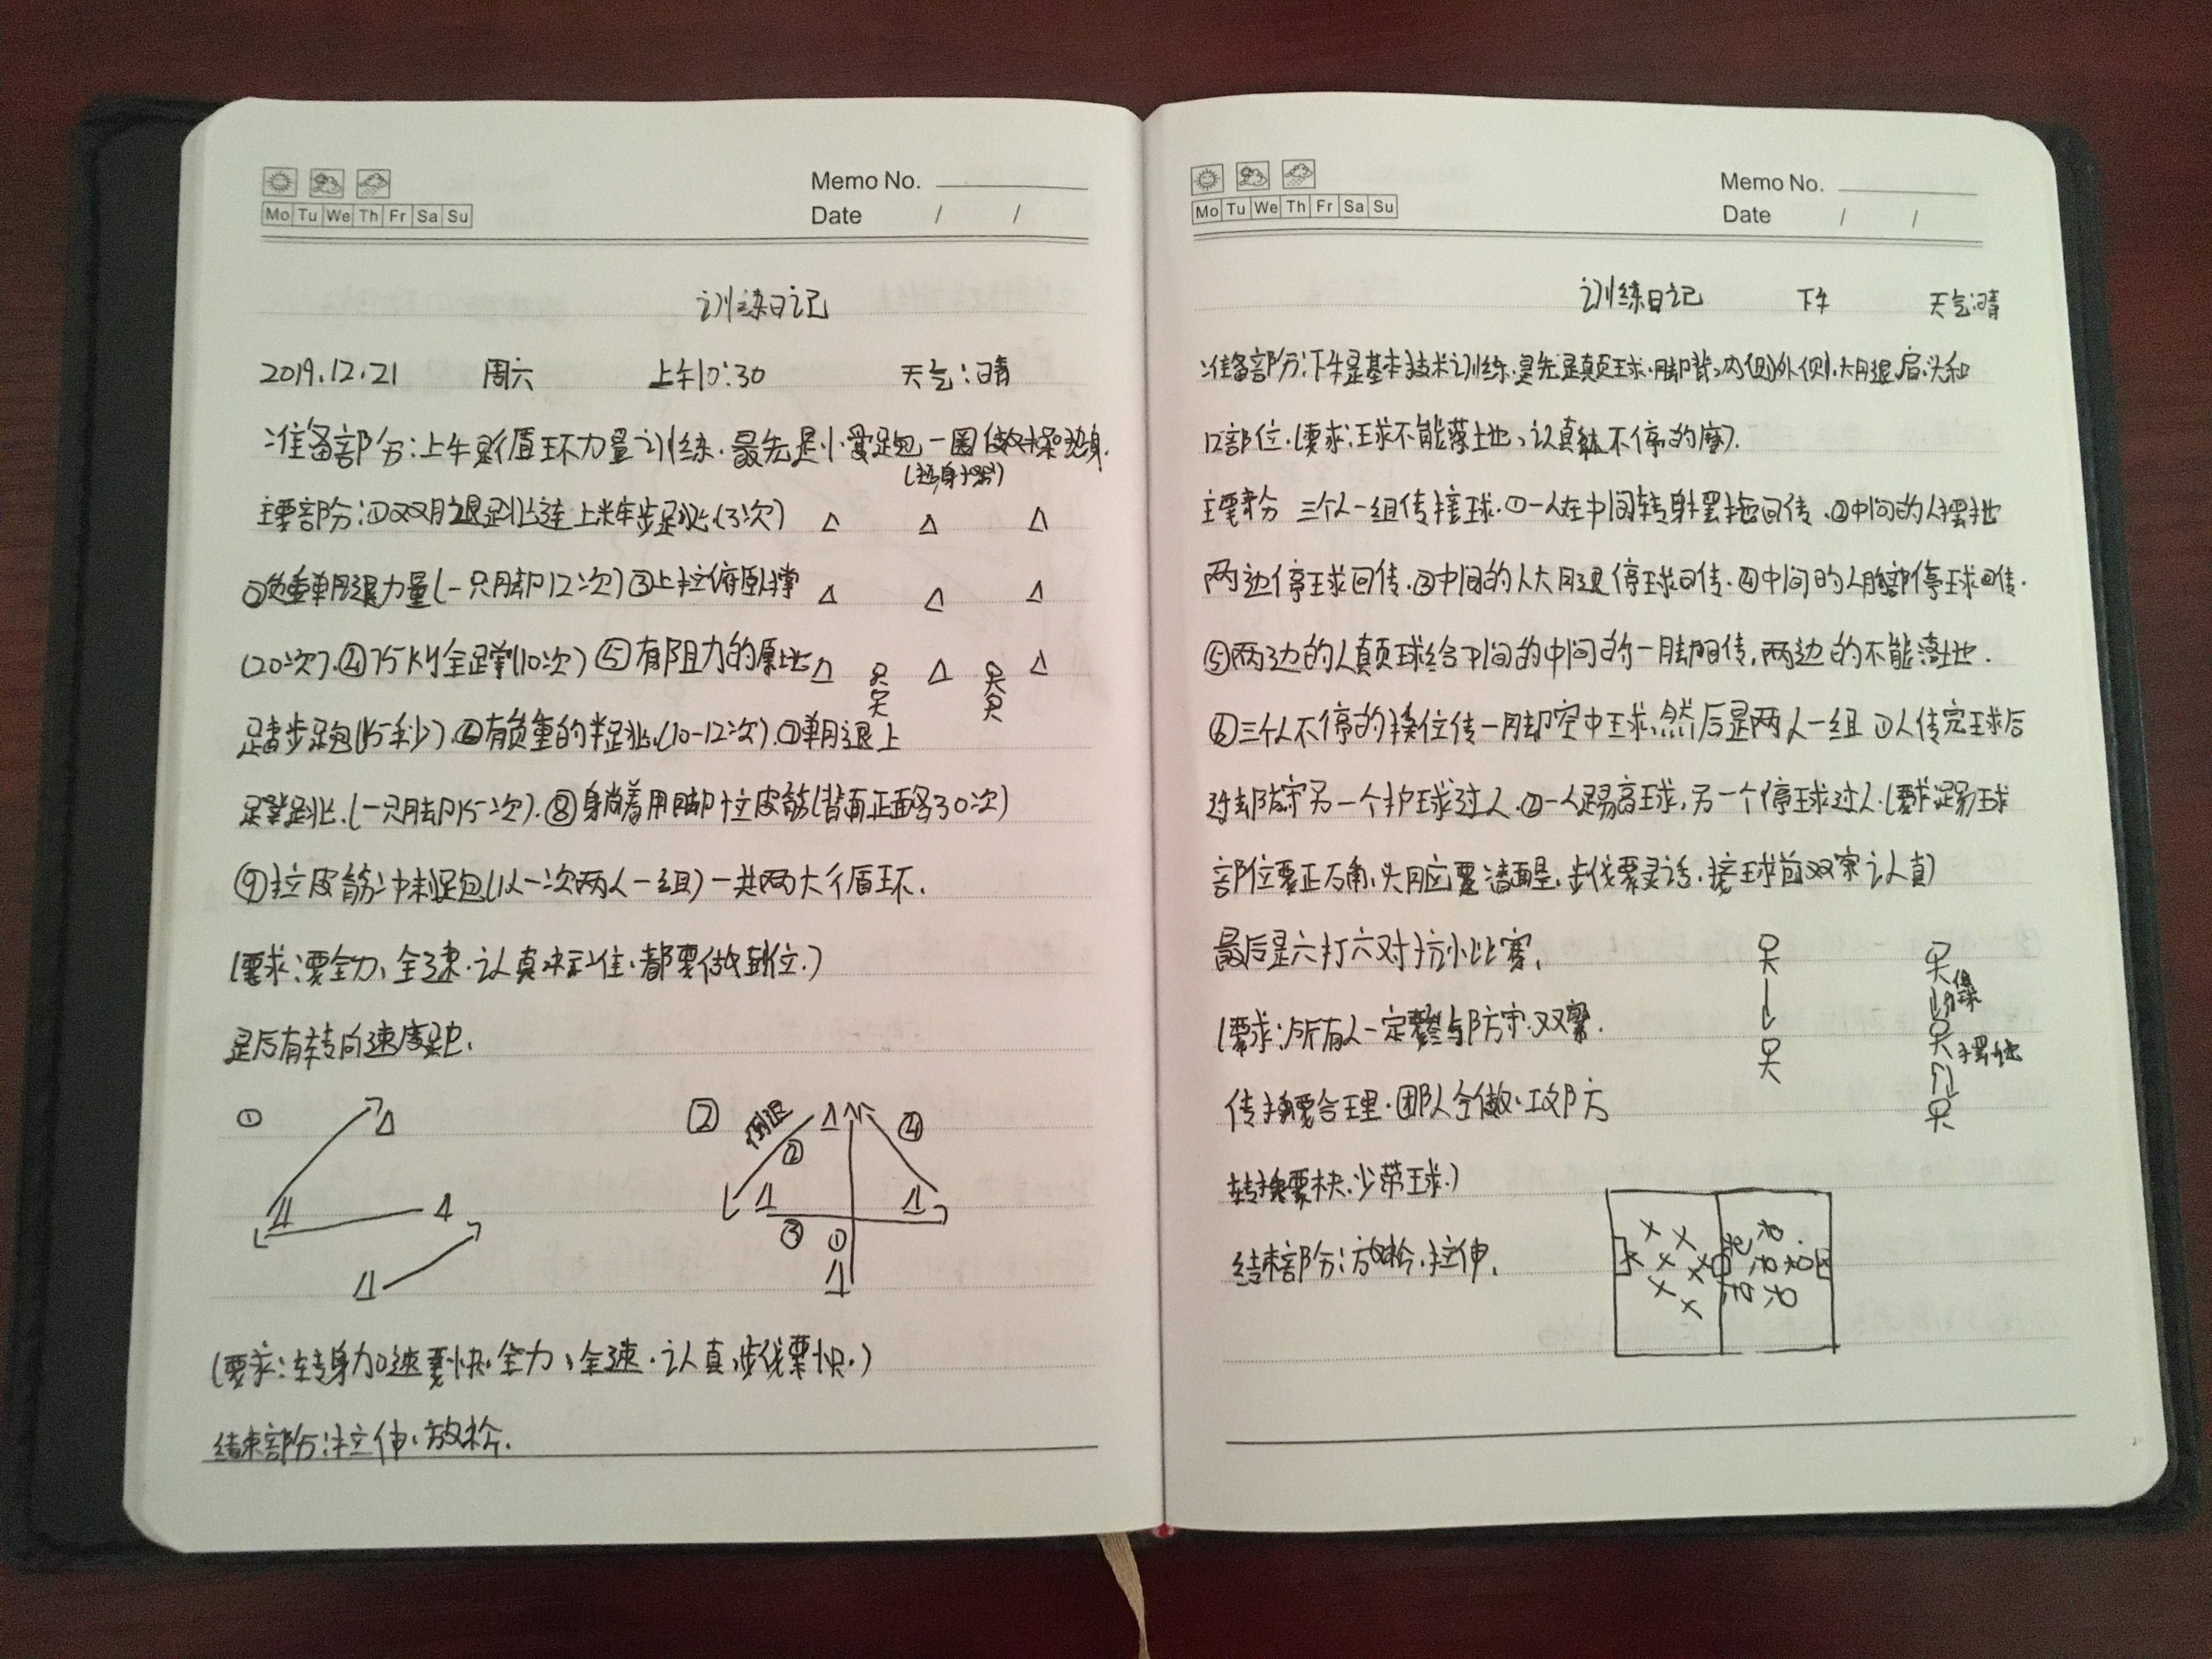 Memo No.
Mo Tu We Th Fr Sa Su
Date / /
训练日记
2019.12.21 周六 上午10:30 天气:晴
准备部分:上午是循环力量训练.最先是小慢跑一圈做操热身.
主要部分:①双腿跳连上米车步跳.(3次)
②负重单腿力量(一只脚12次)③上拉俯卧撑
(20次).④75Kg全蹲(10次)⑤有阻力的原地
踏步跑(15秒).⑥有负重的半蹲跳.(10-12次).⑦单腿上
蹬跳.(一只脚15次).⑧身躺着用脚拉皮筋(背面正面各30次)
⑨拉皮筋冲刺跑(1人一次两人一组)一共两大循环.
(要求:要全力、全速.认真,都要做到位.)
是后有转向速度跑.
① ②
倒退
② ④
③ ①
(要求:转身加速要快.全力、全速.认真,步伐要快.)
结束部分:拉伸、放松.
Memo No.
Mo Tu We Th Fr Sa Su
Date / /
训练日记 下午 天气:晴
准备部分:下午是基本技术训练.是先是颠球.脚背,内侧外侧,大腿,肩,头和
口部位.(要求:球不能落地,认真不停的).
主要部分 三个人一组传接球.①一人在中间转身摆拖回传.②中间的人摆拖
两边停球回传.③中间的人大腿停球回传.④中间的人胸部停球回传.
⑤两边的人颠球给中间的中间的一脚回传,两边的不能落地.
⑥三个人不停的换位传一脚空中球,然后是两人一组①1人传完球后
过去防守另一个护球过人.②一人踢高球,另一个停球过人.(要求:踢球
部位要正确,头脑要清醒,步伐要灵活.接球前观察认真)
最后是六打六对抗小比赛.
(要求:所有人一定要参与防守.观察.
传接要合理.团队合做.攻防
转换要快.少带球.)
结束部分:放松.拉伸.